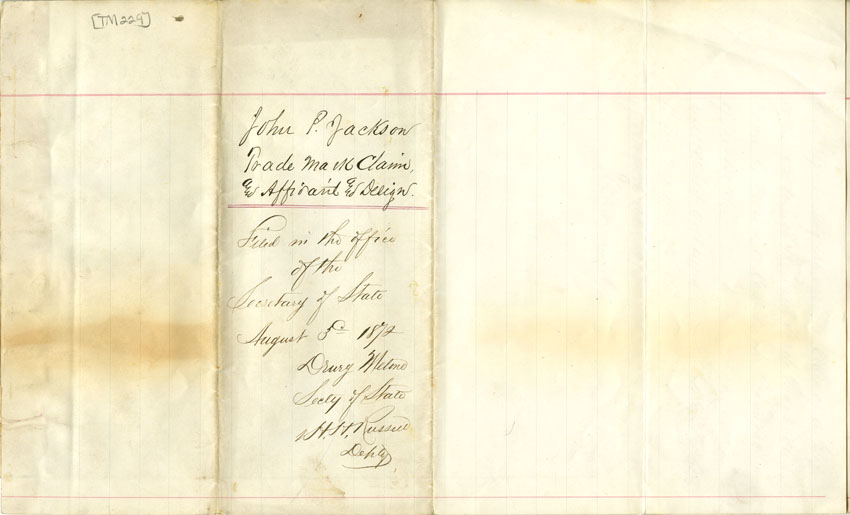 [TM229]
John P. Jackson
Trade Mark Claim,
& Affidavit & Design.
Filed in the office
of the
Secretary of State
August 5th 1872
Drury Melone
Secty of State
H. H. Russell
Depty